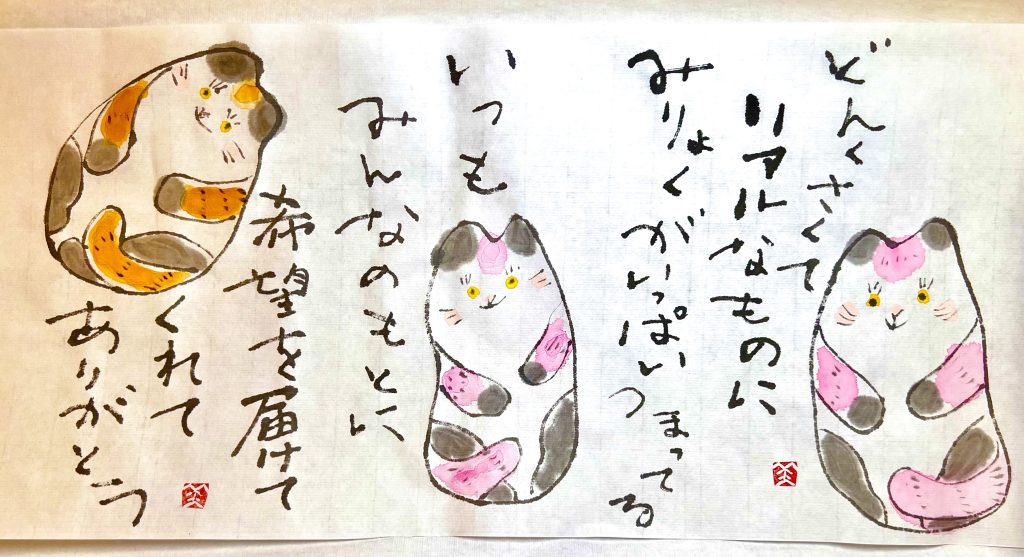 どんくさくて
リアルなものに
みりょくがいっぱいつ
まってる
いつも
みんなのもとに
希望を届けて
くれて
ありがとう